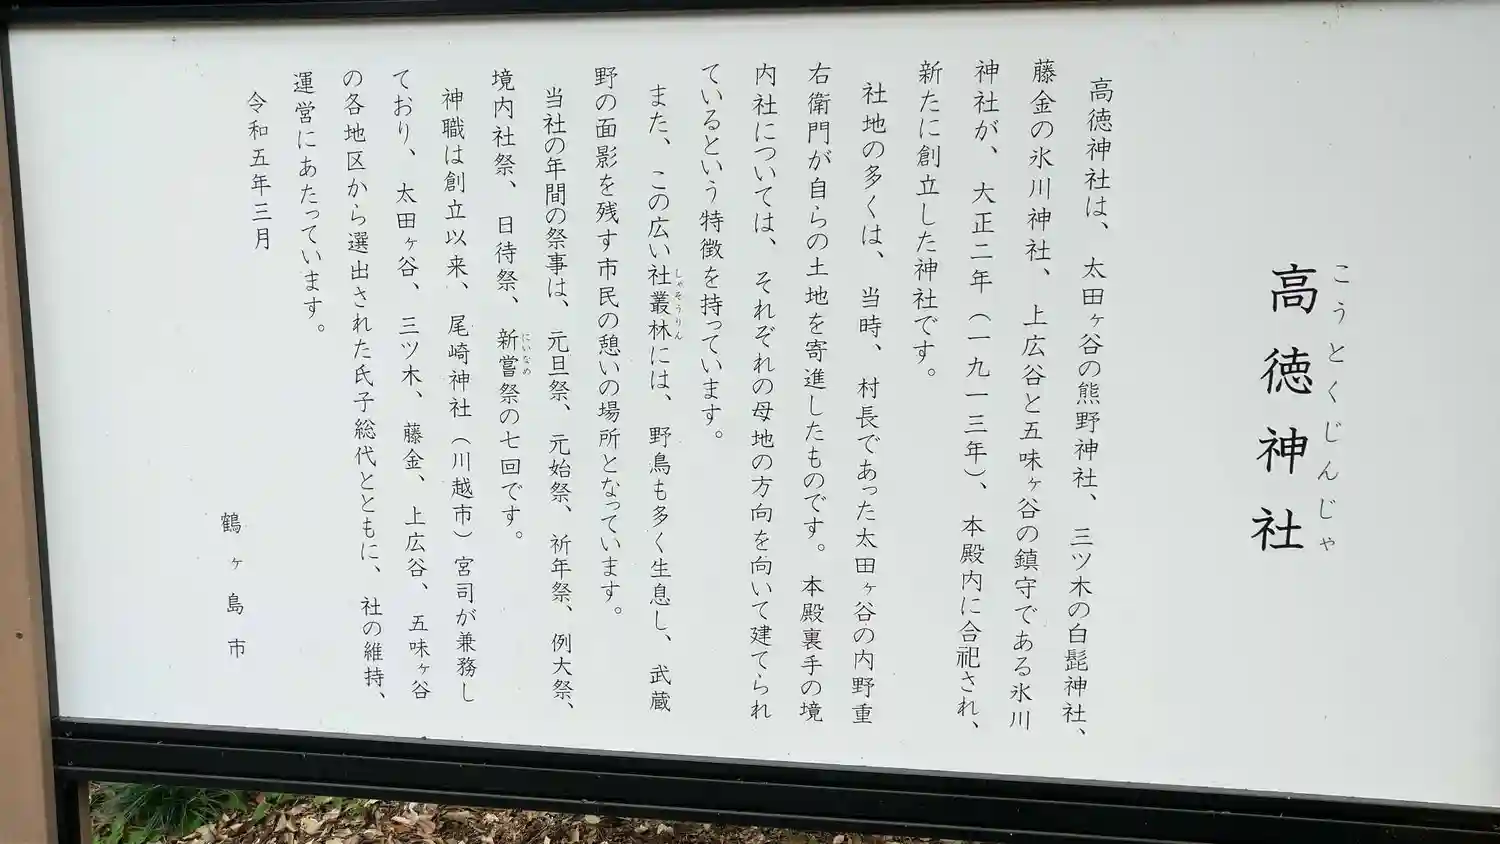 こうとくじんじゃ
高徳神社
高徳神社は、太田ヶ谷の熊野神社、三ツ木の白髭神社、
藤金の氷川神社、上広谷と五味ヶ谷の鎮守である氷川
神社が、大正二年(一九一三年)、本殿内に合祀され、
新たに創立した神社です。
社地の多くは、当時、村長であった太田ヶ谷の内野重
右衛門が自らの土地を寄進したものです。本殿裏手の境
内社については、それぞれの母地の方向を向いて建てられ
ているという特徴を持っています。
しゃそうりん
また、この広い社叢林には、野鳥も多く生息し、武蔵
野の面影を残す市民の憩いの場所となっています。
当社の年間の祭事は、元旦祭、元始祭、祈年祭、例大祭、
にいなめ
境内社祭、日待祭、新嘗祭の七回です。
神職は創立以来、尾崎神社(川越市)宮司が兼務し
ており、太田ヶ谷、三ツ木、藤金、上広谷、五味ヶ谷
の各地区から選出された氏子総代とともに、社の維持、
運営にあたっています。
令和五年三月
鶴ヶ島市